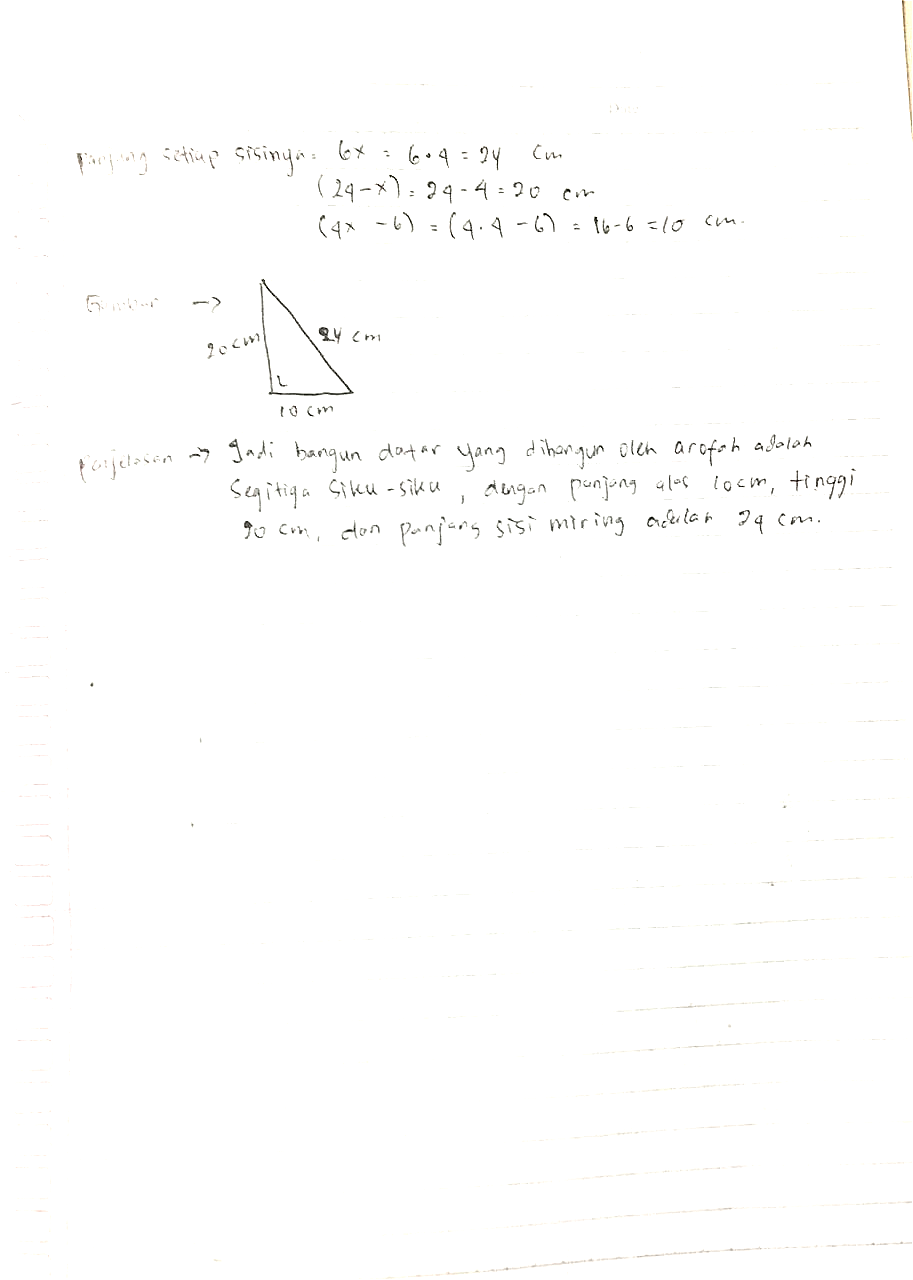 panjang setiap sisinya = 6x = 6 . 4 = 24 cm
(24-x) = 24 - 4 = 20 cm
(4x - 6) = (4 . 4 - 6) = 16-6 = 10 cm.
Gambar →
20 cm
24 cm
10 cm
Penjelasan → Jadi bangun datar yang dibangun oleh arofah adalah
segitiga siku-siku, dengan panjang alas 10cm, tinggi
20 cm, dan panjang sisi miring adalah 24 cm.